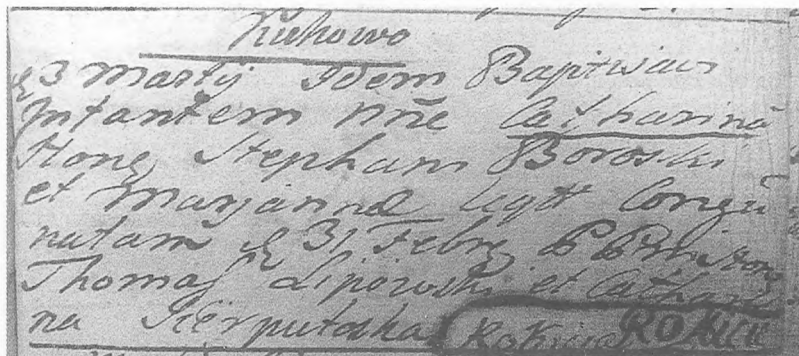 Kukowo
d 3 Martij Idem Baptisavi
Infantem nñe Catharinã
Hong Stephani Boroski
et Marjannæ legtt Conjũ
natam d 31 Febrz PPrni Hong
Thomas Lipowski et Cathari
na Sierputoska